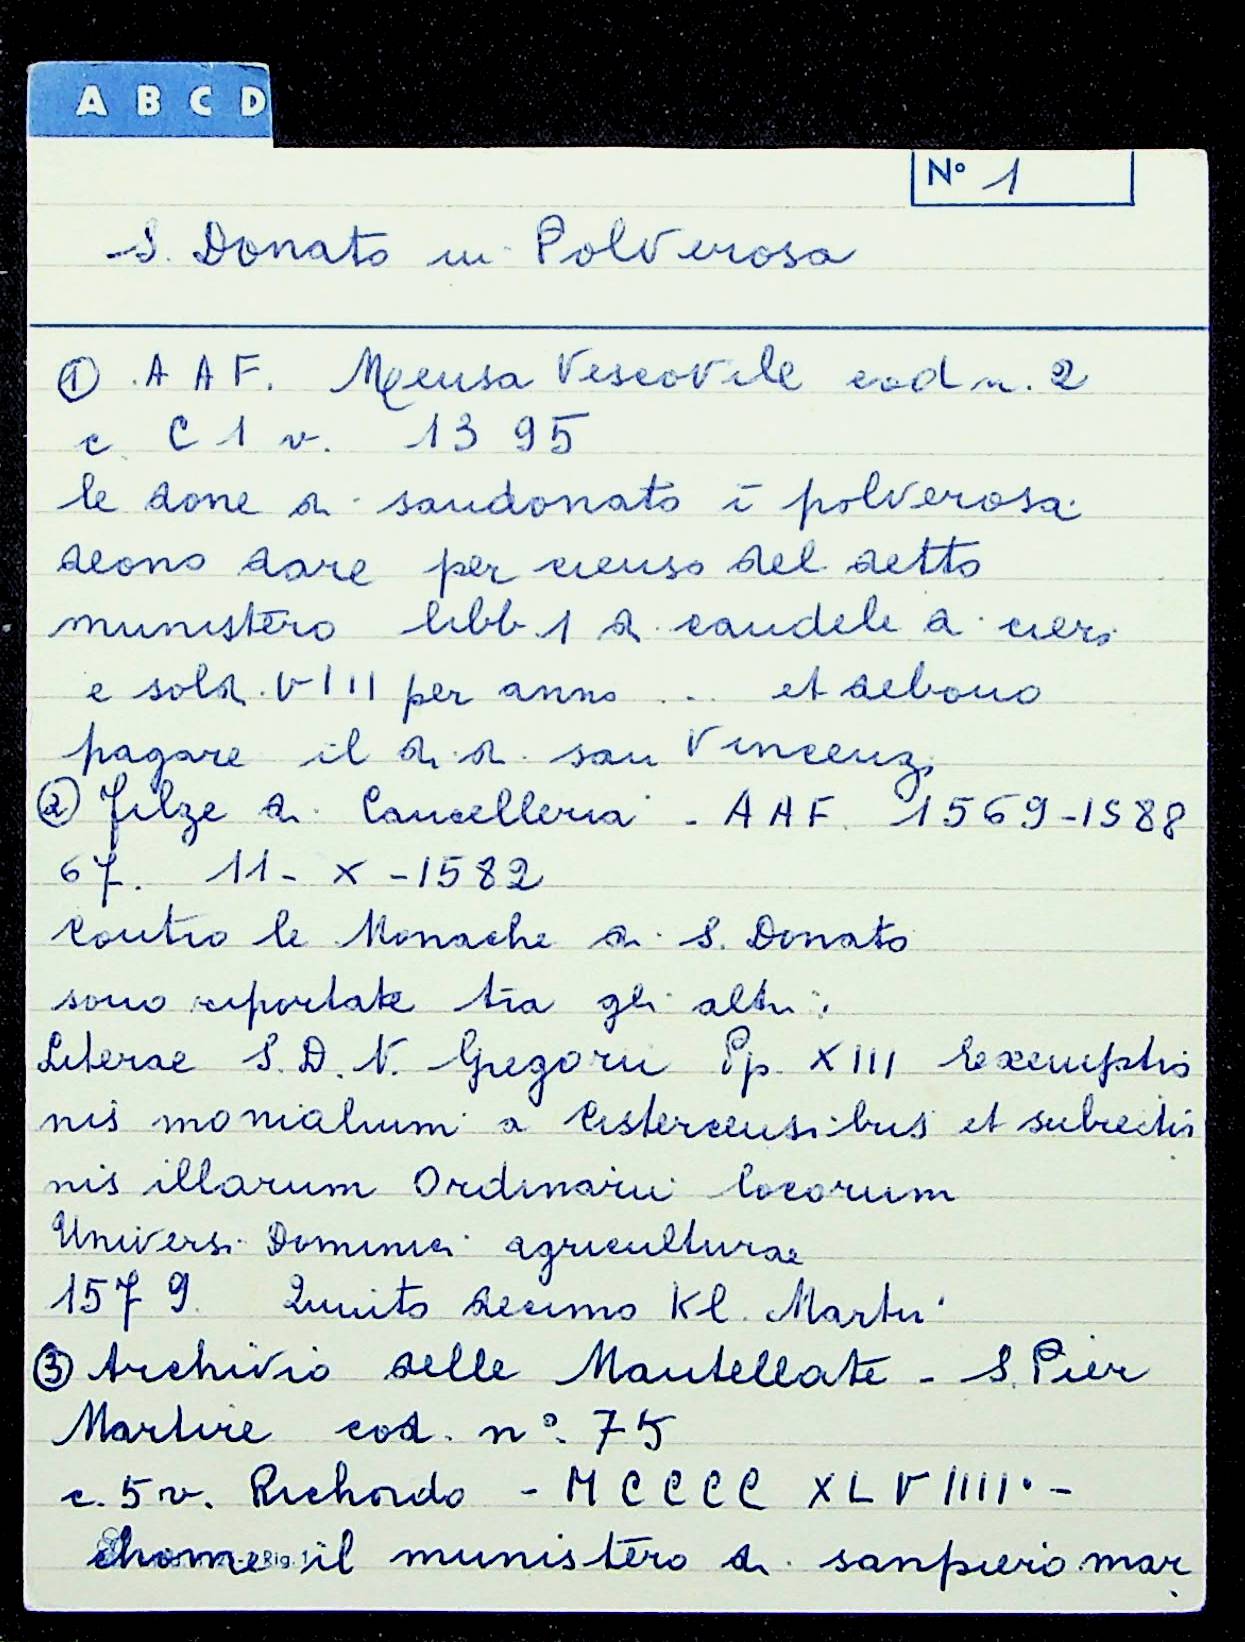 A B C D
N° 1
S. Donato in Polverosa
① A A F. Mensa Vescovile cod n. 2
c. C 1 v. 1395
le done di sandonato ī polverosa
deono dare per cienso del detto
munistēro libb 1 di candele di ciera
e soldi VIII per anno ... et debono
pagare il dì di san Vincenzi
② Filze di Cancelleria - A A F. 1569-1588
67. 11-X-1582
contro le Monache di S. Donato
sono riportate tra gli altri:
Literae S. D. N. Gregorii Pp. XIII exemptio
nis monialium a Cistercensibus et subiectio
nis illarum Ordinarii locorum
Universi Dominici agriculturae
1579. Quinto decimo Kl. Martii
③ Archivio delle Mantellate - S. Pier
Martire cod. n°. 75
c. 5 v. Richordo - M C C C C X L V I I I I. -
chome il munistēro di sanpiero mar